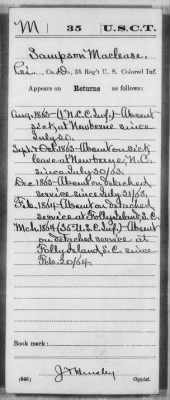 M | 35 | U.S.C.T.
Sampson Maclease.
Co. D., 35 Reg't U. S. Colored Inf.
Appears on Returns as follows:
Aug. 1863-(1" N.C.C. Inf.)-Absent
sick, at Newberne since
July 30.
Sept. & Oct. 1863-Absent on sick
leave at Newberne, N.C.
since July 30/63.
Dec. 1863-Absent on detached
service since July 31/63.
Feb. 1864-Absent on detached
service at Folly Island, S.C.
Mch. 1864-(35" U.S.C. Inf.)-Absent
on detached service at
Folly Island, S.C. since
Feb. 20/64.
Book mark:
(546)
Copyist.